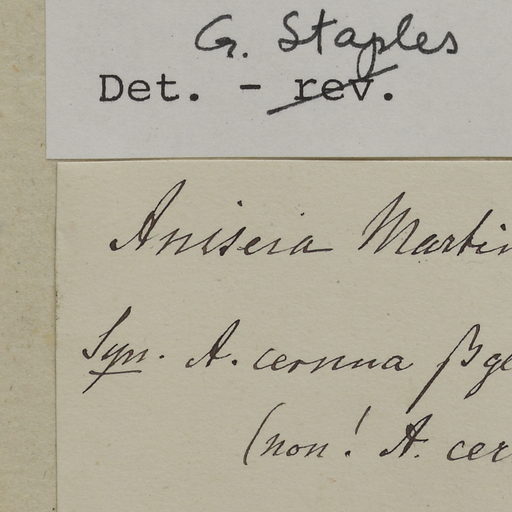 G. Staples
Det. - rev.
Aniseia Martin
Syn. A. cernua β ge
(non! A. cer